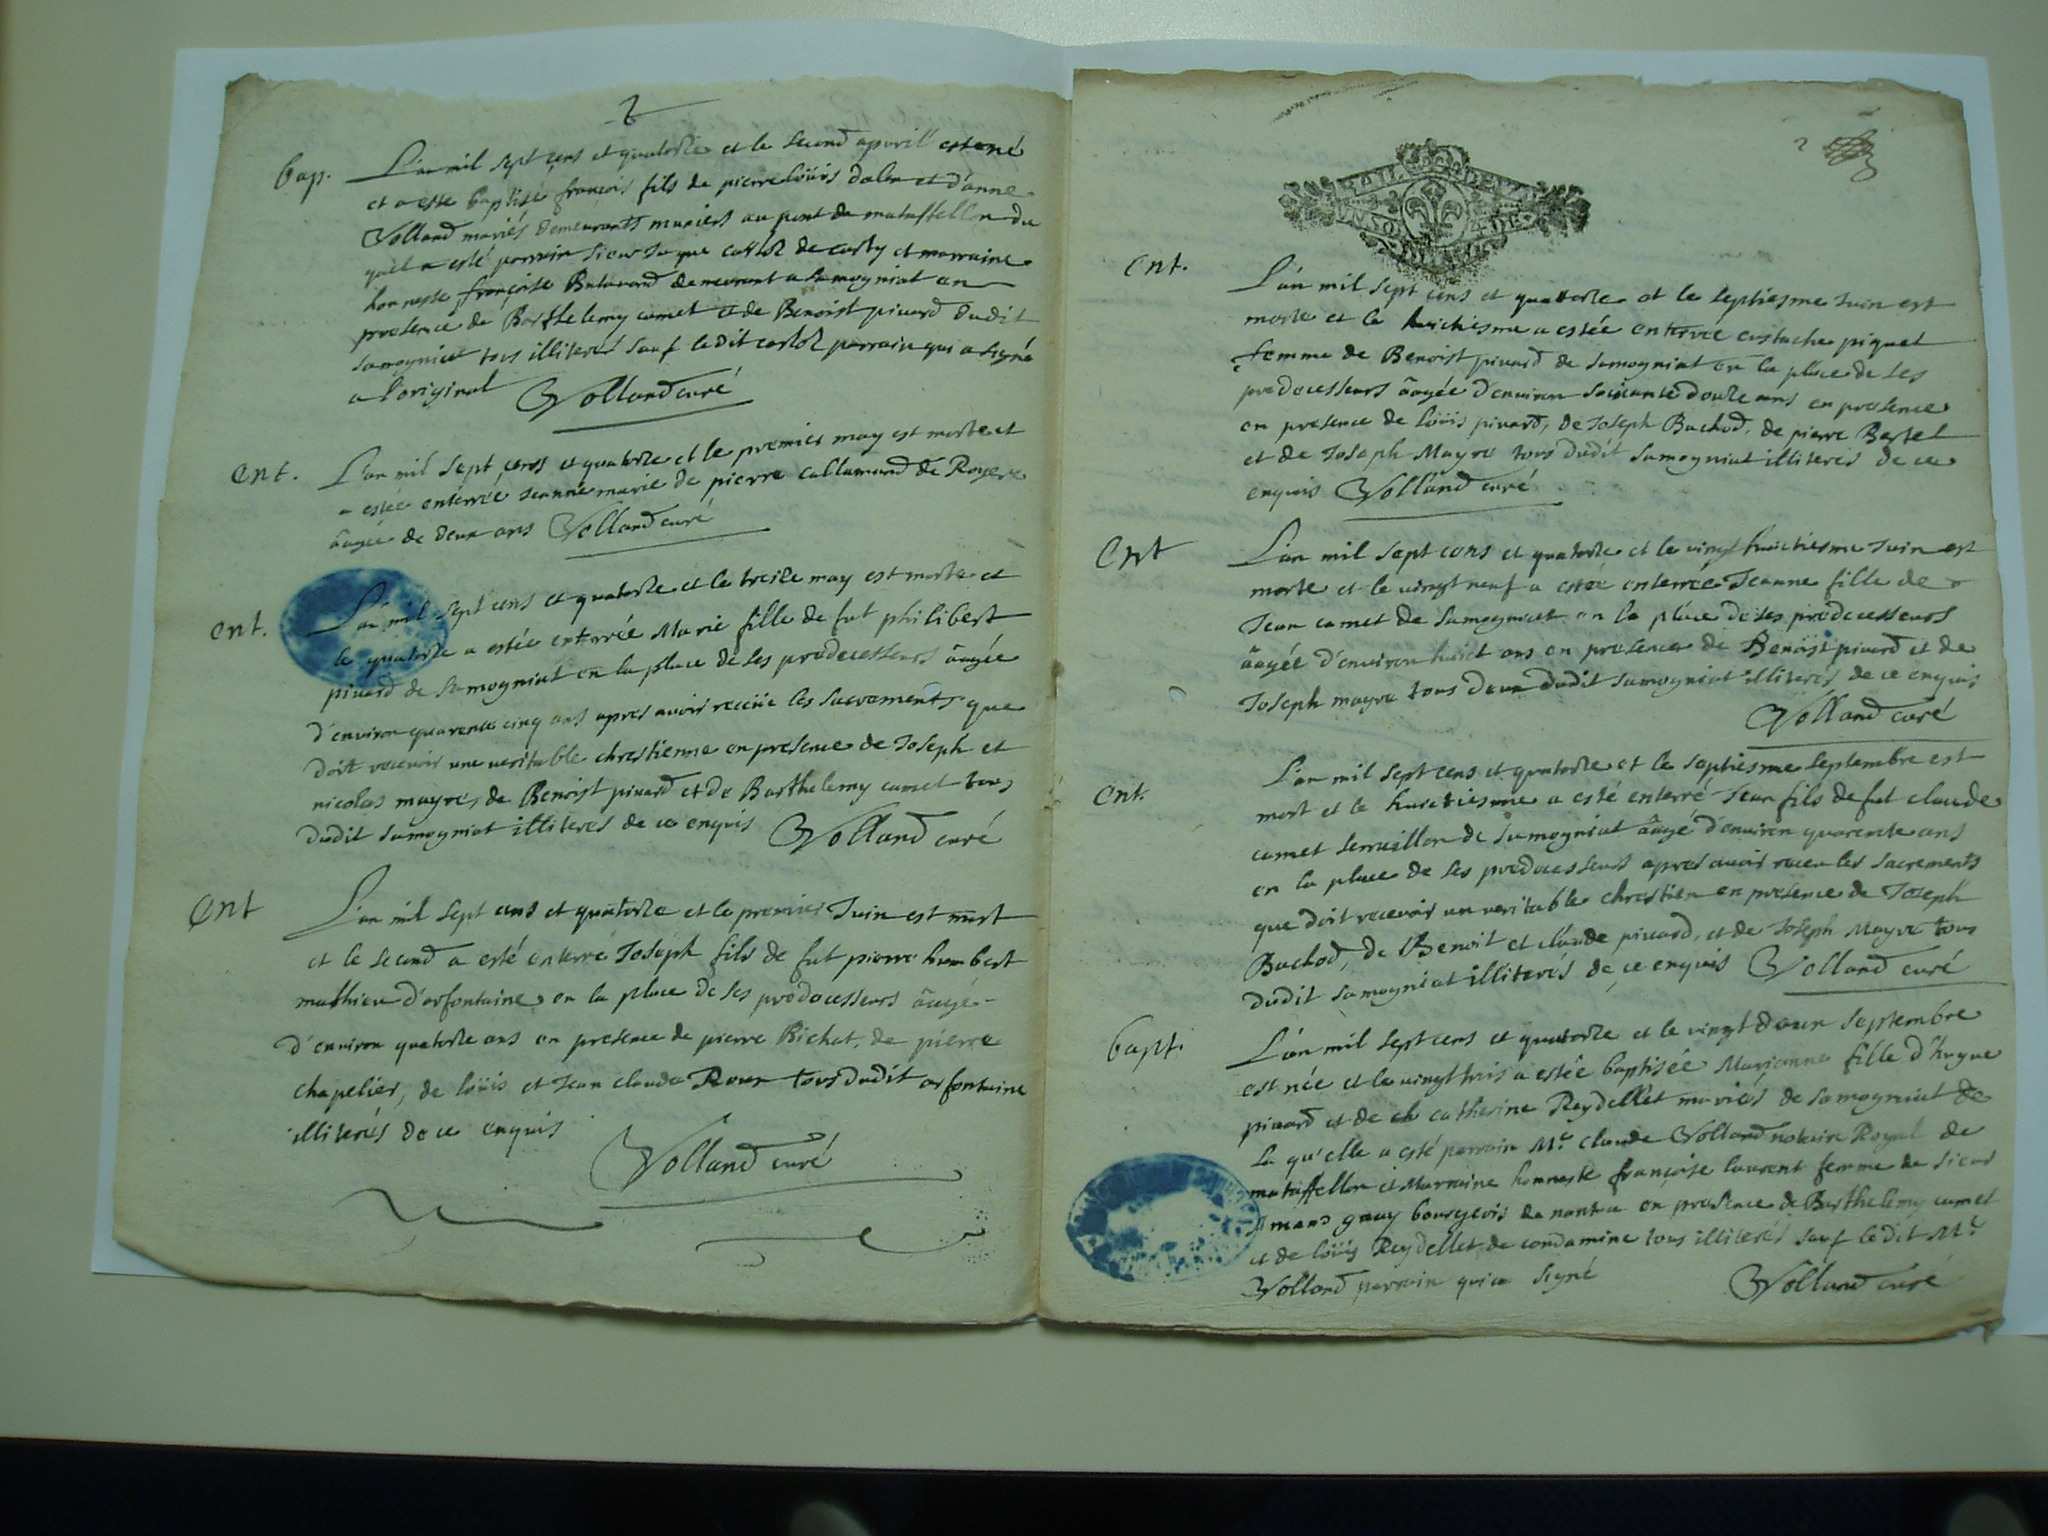 2
bap. L'an mil sept cens et quatorze et le second apvril est né
et a esté baptisé françois fils de pierre loüis dalen et d'anne
Volland mariés demeurants muniers au pont de matafellon du
quel a esté parrain sieur cattol de et marraine
honneste françoise demeurant a samogniat en
presence de Barthelemy camet et de Benoist pivard dudit
samogniat tous illiterés sauf le dit parrain qui a signé
a l'original Volland curé
Ent. L'an mil sept cens et quatorze et le premier may est morte et
a estée enterrée jeanne marie de pierre callamand de Royere
âagée de deux ans Volland curé
Ent. L'an mil sept cens et quatorze et le treize may est morte et
le quatorze a estée enterrée Marie fille de fut philibert
pivard de samogniat en la place de ses predecesseurs âagée
d'environ quarente cinq ans apres avoir receüe les sacrements que
doit recevoir une veritable chrestienne en presence de Joseph et
nicolas mayre, de Benoist pivard et de Barthelemy camet tous
dudit samogniat illiterés de ce enquis Volland curé
Ent L'an mil sept cens et quatorze et le premier Juin est mort
et le second a esté enterré Joseph fils de fut pierre humbert
mathieu d'orfontaine en la place de ses predecesseurs âagé
d'environ quatorze ans en presence de pierre Richat, de pierre
chapelier, de loüis et Jean claude Roux tous dudit orfontaine
illiterés de ce enquis
Volland curé
2
Ent. L'an mil sept cens et quatorze et le septiesme Juin est
morte et le huictiesme a estée enterrée eustache piquet
femme de Benoist pivard de samogniat en la place de ses
predecesseurs âagée d'environ soixante douze ans en presence
en presence de loüis pivard, de Joseph Buchod, de pierre Bertel
et de Joseph Mayre tous dudit samogniat illiterés de ce
enquis Volland curé
Ent L'an mil sept cens et quatorze et le vingt huictiesme Juin est
morte et le vingt neuf a estée enterrée Jeanne fille de
Jean camet de samogniat en la place de ses predecesseurs
âagée d'environ huict ans en presence de Benoist pivard et de
Joseph mayre tous deux dudit samogniat illiterés de ce enquis
Volland curé
Ent. L'an mil sept cens et quatorze et le septiesme septembre est
mort et le huictiesme a esté enterré Jean fils de fut claude
camet de samogniat âagé d'environ quarente ans
en la place de ses predecesseurs apres avoir receu les sacrements
que doit recevoir un veritable chrestien en presence de Joseph
Buchod, de Benoit et claude pivard, et de Joseph Mayre tous
dudit samogniat illiterés de ce enquis Volland curé
bapt. L'an mil sept cens et quatorze et le vingt deux septembre
est née et le vingt trois a estée baptisée Marianne fille d'hugue
pivard et de catherine Reydellet mariés de samogniat de
la qu'elle a esté parrain Mr. claude Volland notaire Royal de
mataffellon et Marraine honneste françoise laurent femme de sieur
bourgeois de nantua en presence de Barthelemy camet
et de loüis Reydellet de condamine tous illiterés sauf le dit Mr.
Volland parrain qui a signé Volland curé